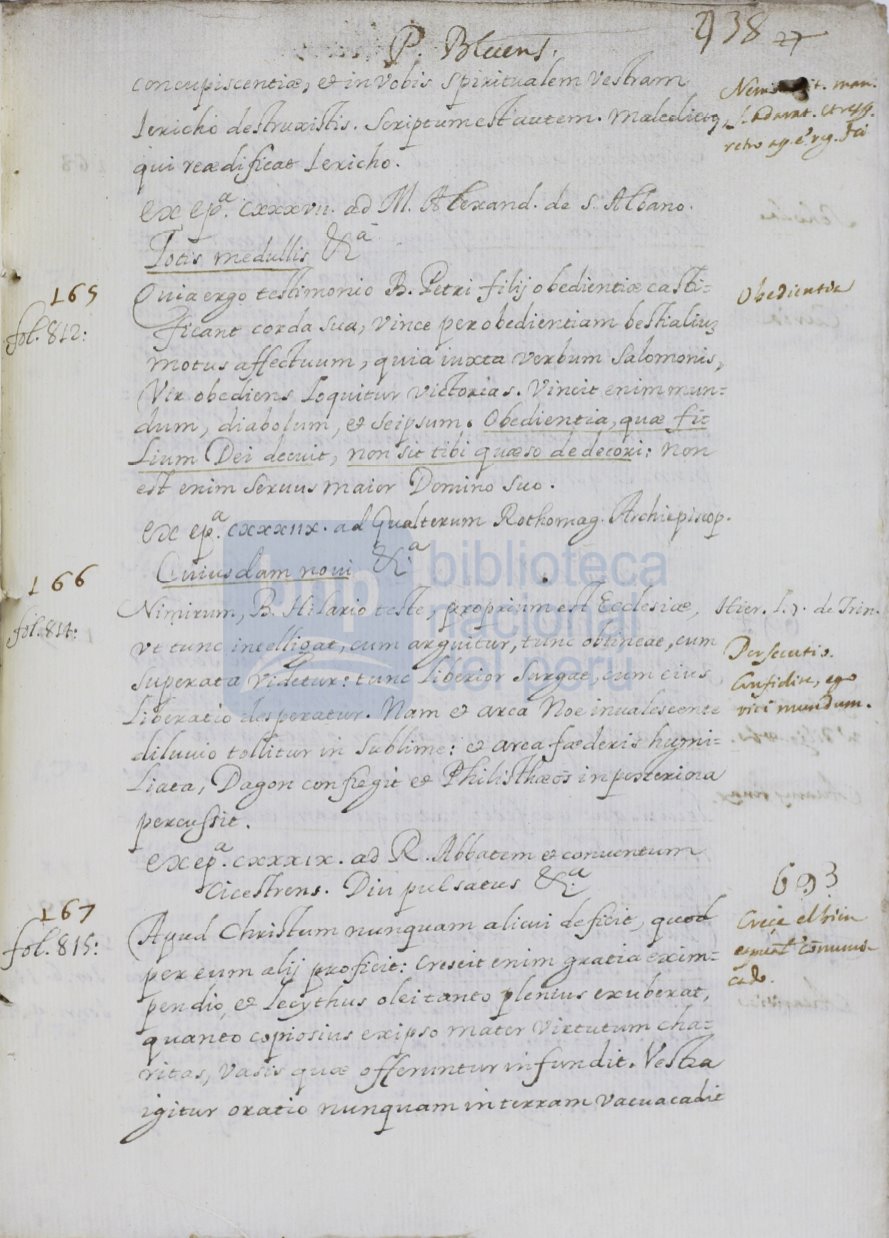 P. Blesens.
238 27
concupiscentiæ, et in vobis spiritualem vestram
Iericho destruxistis. Scriptum est autem. Maledictus,
qui reædificat Iericho.
Nemo mit. man.
retro
ex ep.ª cxxxvii. ad M. Alexand. de S. Albano.
Totis medullis &ª
165
fol. 812:
Quia ergo testimonio B. Petri filij obedientiæ casti-
ficant corda sua, vince per obedientiam bestialiũ
motus affectuum, quia iuxta verbum Salomonis,
Vir obediens loquitur victorias. Vincit enim mun-
dum, diabolum, et seipsum. Obedientia, quæ fi-
lium Dei decuit, non sit tibi quæso dedecori: non
est enim servus maior Domino suo.
Obedientia
ex ep.ª cxxxiix. ad Gualterum Rothomag. Archiepiscop.
Cuiusdam novi &ª
166
fol. 814:
Nimirum, B. Hilario teste, proprium est Ecclesiæ,
vt tunc intelligat, cum arguitur, tunc obtineat, cum
superata videtur: tunc liberior surgat, cum eius
liberatio desperatur. Nam et arca Noe invalescente
diluvio tollitur in sublime: et arca fæderis humi-
liata, Dagon confregit et Philisthæos in posteriora
percussit.
Hier. l. 7. de Trin.
Persecutio.
Confidite, ego
vici mundum.
ex ep.ª cxxxix. ad R. Abbatem et conventum
Cicestrens. Diu pulsatus &ª
167
fol. 815:
Apud Christum nunquam alicui deficit, quod
per eum alij proficit: crescit enim gratia ex im-
pendio, et lecythus olei tanto plenius exuberat,
quanto copiosius ex ipso mater virtutum cha-
ritas, vasis quæ offeruntur infundit. Vestra
igitur oratio nunquam in terram vacua cadit
693
Crece el bien
comuni-
cado.
bnp
biblioteca
nacional
del perú